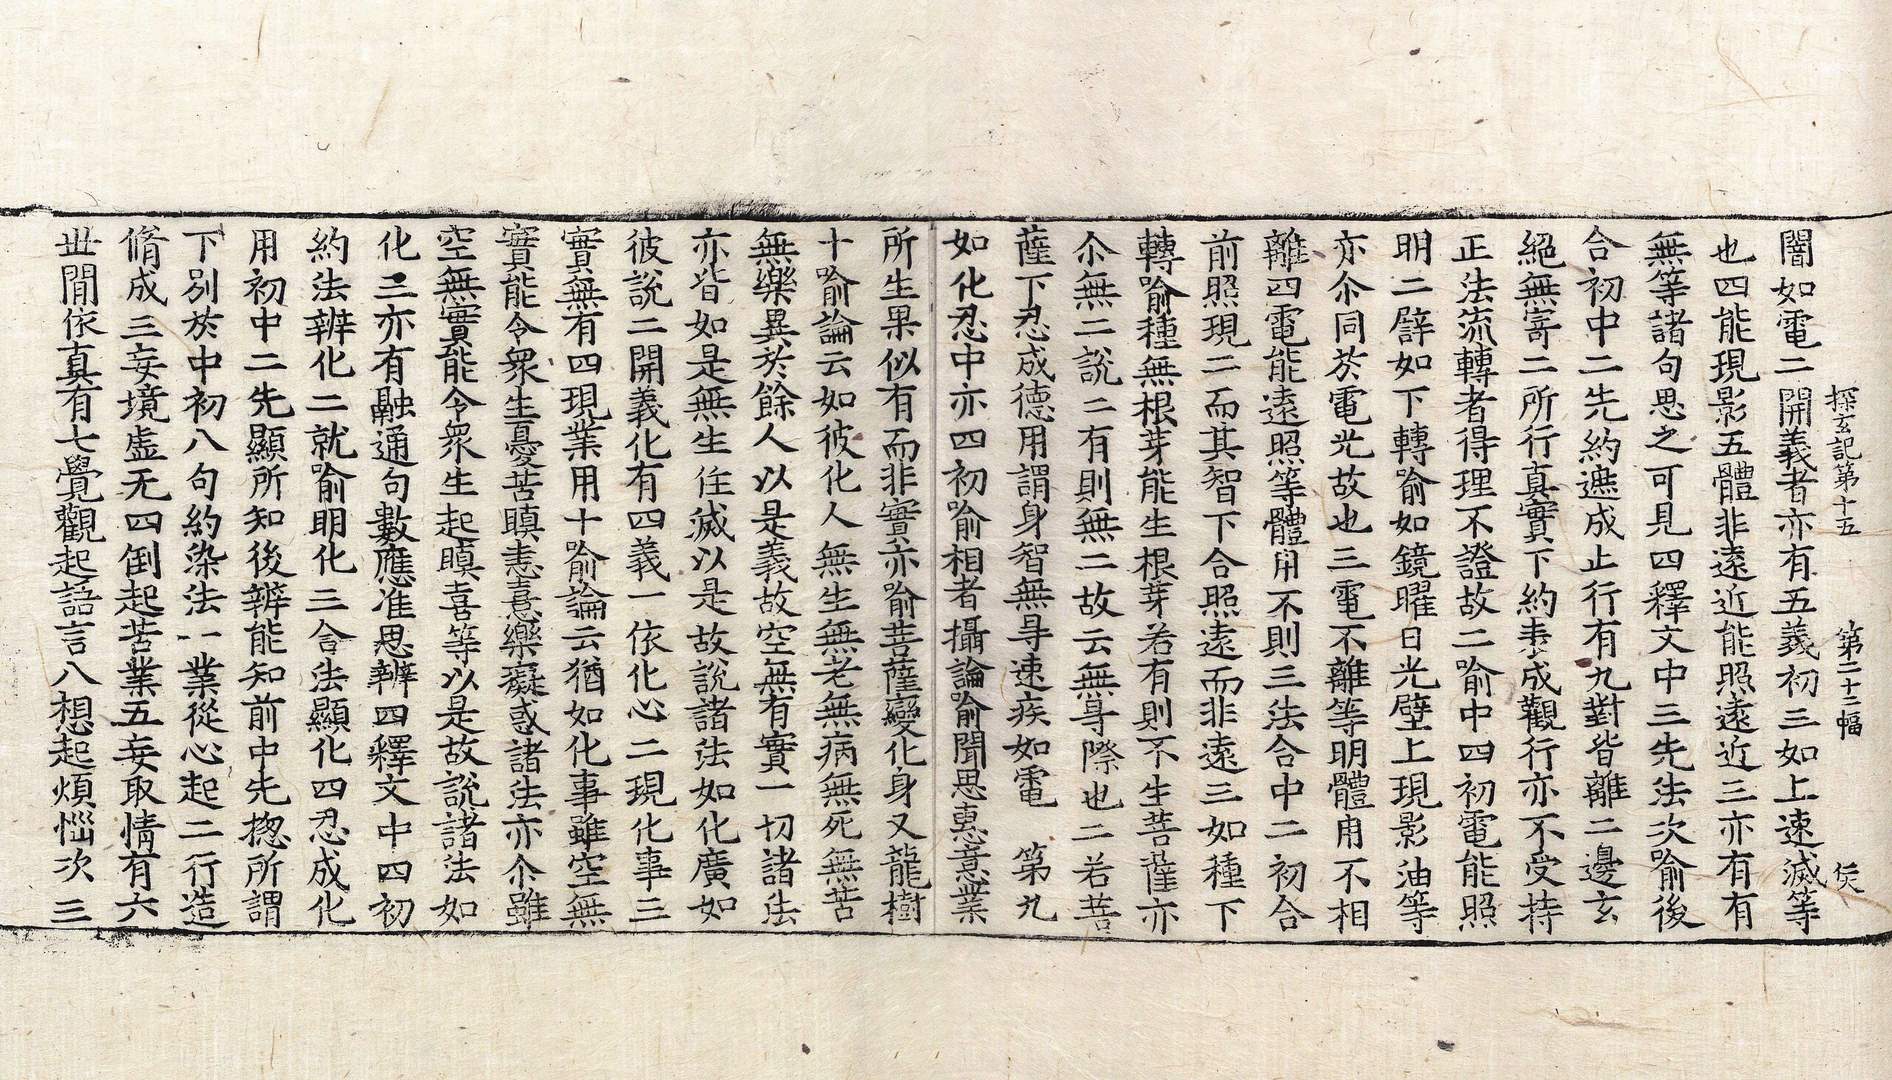 探玄記第十五 第二十三幅 俟
闇如電二開義者亦有五義初三如上速滅等
也四能現影五體非遠近能照遠近三亦有有
無等諸句思之可見四釋文中三先法次喻後
合初中二先約遮成止行有九對皆離二邊玄
絕無寄二所行真實下約表成觀行亦不受持
正法流轉者得理不證故二喻中四初電能照
明二譬如下轉喻如鏡曜日光壁上現影油等
亦尒同於電光故也三電不離等明體用不相
離四電能遠照等體用不則三法合中二初合
前照現二而其智下合照遠而非遠三如種下
轉喻種無根芽能生根芽若有則不生菩薩亦
尒無二說二有則無二故云無㝵際也二若菩
薩下忍成德用謂身智無㝵速疾如電 第九
如化忍中亦四初喻相者攝論喻聞思惠意業
所生果似有而非實亦喻菩薩變化身又龍樹
十喻論云如彼化人無生無老無病無死無苦
無樂異於餘人以是義故空無有實一切諸法
亦皆如是無生住滅以是故說諸法如化廣如
彼說二開義化有四義一依化心二現化事三
實無有四現業用十喻論云猶如化事雖空無
實能令衆生憂苦瞋恚憙樂癡惑諸法亦尒雖
空無實能令衆生起瞋喜等以是故說諸法如
化三亦有融通句數應准思辨四釋文中四初
約法辨化二就喻明化三合法顯化四忍成化
用初中二先顯所知後辨能知前中先揔所謂
下別於中初八句約染法一業從心起二行造
脩成三妄境虛无四倒起苦業五妄取情有六
世間依真有七覺觀起語言八想起煩惱次三